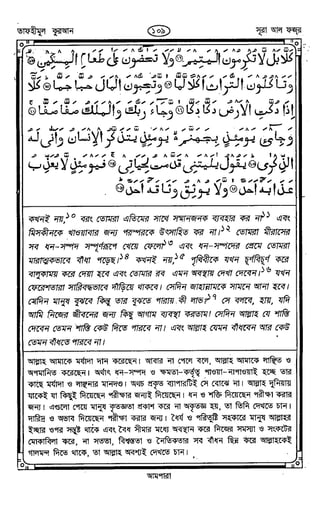 তাফহীমুল কুরআন
১০৯
সূরা আল ফজর
كَلَّا بَلْ لَّا تُكْرِمُوْنَ الْيَتِيْمَ ۞ وَلَا تَحٰٓضُّوْنَ عَلٰى طَعَامِ الْمِسْكِيْنِ ۞
وَتَاْكُلُوْنَ التُّرَاثَ اَكْلًا لَّمًّا ۞ وَّتُحِبُّوْنَ الْمَالَ حُبًّا جَمًّا ۞ كَلَّآ
اِذَا دُكَّتِ الْاَرْضُ دَكًّا دَكًّا ۞ وَّجَآءَ رَبُّكَ وَالْمَلَكُ صَفًّا صَفًّا ۞
وَجِايْٓءَ يَوْمَئِذٍۢ بِجَهَنَّمَ ۥۙ يَوْمَئِذٍ يَّتَذَكَّرُ الْاِنْسَانُ وَاَنّٰى لَهُ
الذِّكْرٰى ۞ يَقُوْلُ يٰلَيْتَنِيْ قَدَّمْتُ لِحَيَاتِيْ ۞ فَيَوْمَئِذٍ لَّا يُعَذِّبُ
عَذَابَهٗٓ اَحَدٌ ۞ وَّلَا يُوْثِقُ وَثَاقَهٗٓ اَحَدٌ ۞
কখনই নয়,১০ বরং তোমরা এতিমের সাথে সম্মানজনক ব্যবহার কর না১১ এবং
মিসকীনকে খাওয়াবার জন্য পরস্পরকে উৎসাহিত কর না।১২ তোমরা মীরাসের
সব ধন-সম্পদ সম্পূর্ণরূপে খেয়ে ফেলো১৩ এবং ধন-সম্পদের প্রেমে তোমরা
মারাত্মকভাবে বাঁধা পড়েছ।১৪ কখনই নয়,১৫ পৃথিবীকে যখন চূর্ণবিচূর্ণ করে
বালুকাময় করে দেয়া হবে এবং তোমার রব এমন অবস্থায় দেখা দেবেন।১৬ যখন
ফেরেশতারা সারিবদ্ধভাবে দাঁড়িয়ে থাকবে। সেদিন জাহান্নামকে সামনে আনা হবে।
সেদিন মানুষ বুঝবে কিন্তু তার বুঝতে পারায় কী লাভ?১৭ সে বলবে, হায়, যদি
আমি নিজের জীবনের জন্য কিছু আগাম ব্যবস্থা করতাম! সেদিন আল্লাহ যে শাস্তি
দেবেন তেমন শাস্তি কেউ দিতে পারবে না। এবং আল্লাহ যেমন বাঁধবেন আর কেউ
তেমন বাঁধতে পারবে না।
আল্লাহ আমাকে মর্যাদা দান করেছেন। আবার না পেলে বলে, আল্লাহ আমাকে লাঞ্ছিত ও
অপমানিত করেছেন। অর্থাৎ ধন-সম্পদ ও ক্ষমতা-কর্তৃত্ব পাওয়া-নাপাওয়াই হচ্ছে তার
কাছে মর্যাদা ও লাঞ্ছনার মানদণ্ড। অথচ প্রকৃত ব্যাপারটিই সে বোঝে না। আল্লাহ দুনিয়ায়
যাকেই যা কিছুই দিয়েছেন পরীক্ষার জন্যই দিয়েছেন। ধন ও শক্তি দিয়েছেন পরীক্ষা করার
জন্য। এগুলো পেয়ে মানুষ কৃতজ্ঞতা প্রকাশ করে না অকৃতজ্ঞ হয়, তা তিনি দেখতে চান।
দারিদ্র ও অভাব দিয়েছেন পরীক্ষা করার জন্য। ধৈর্য ও পরিতুষ্টি সহকারে মানুষ আল্লাহর
ইচ্ছার ওপর সন্তুষ্ট থাকে এবং বৈধ সীমার মধ্যে অবস্থান করে নিজের সমস্যা ও সংকটের
মোকাবিলা করে, না সততা, বিশ্বস্ততা ও নৈতিকতার সব বাঁধন ছিন্ন করে আল্লাহকেই
গালমন্দ দিতে থাকে, তা আল্লাহ অবশ্যই দেখতে চান।
আমপারা